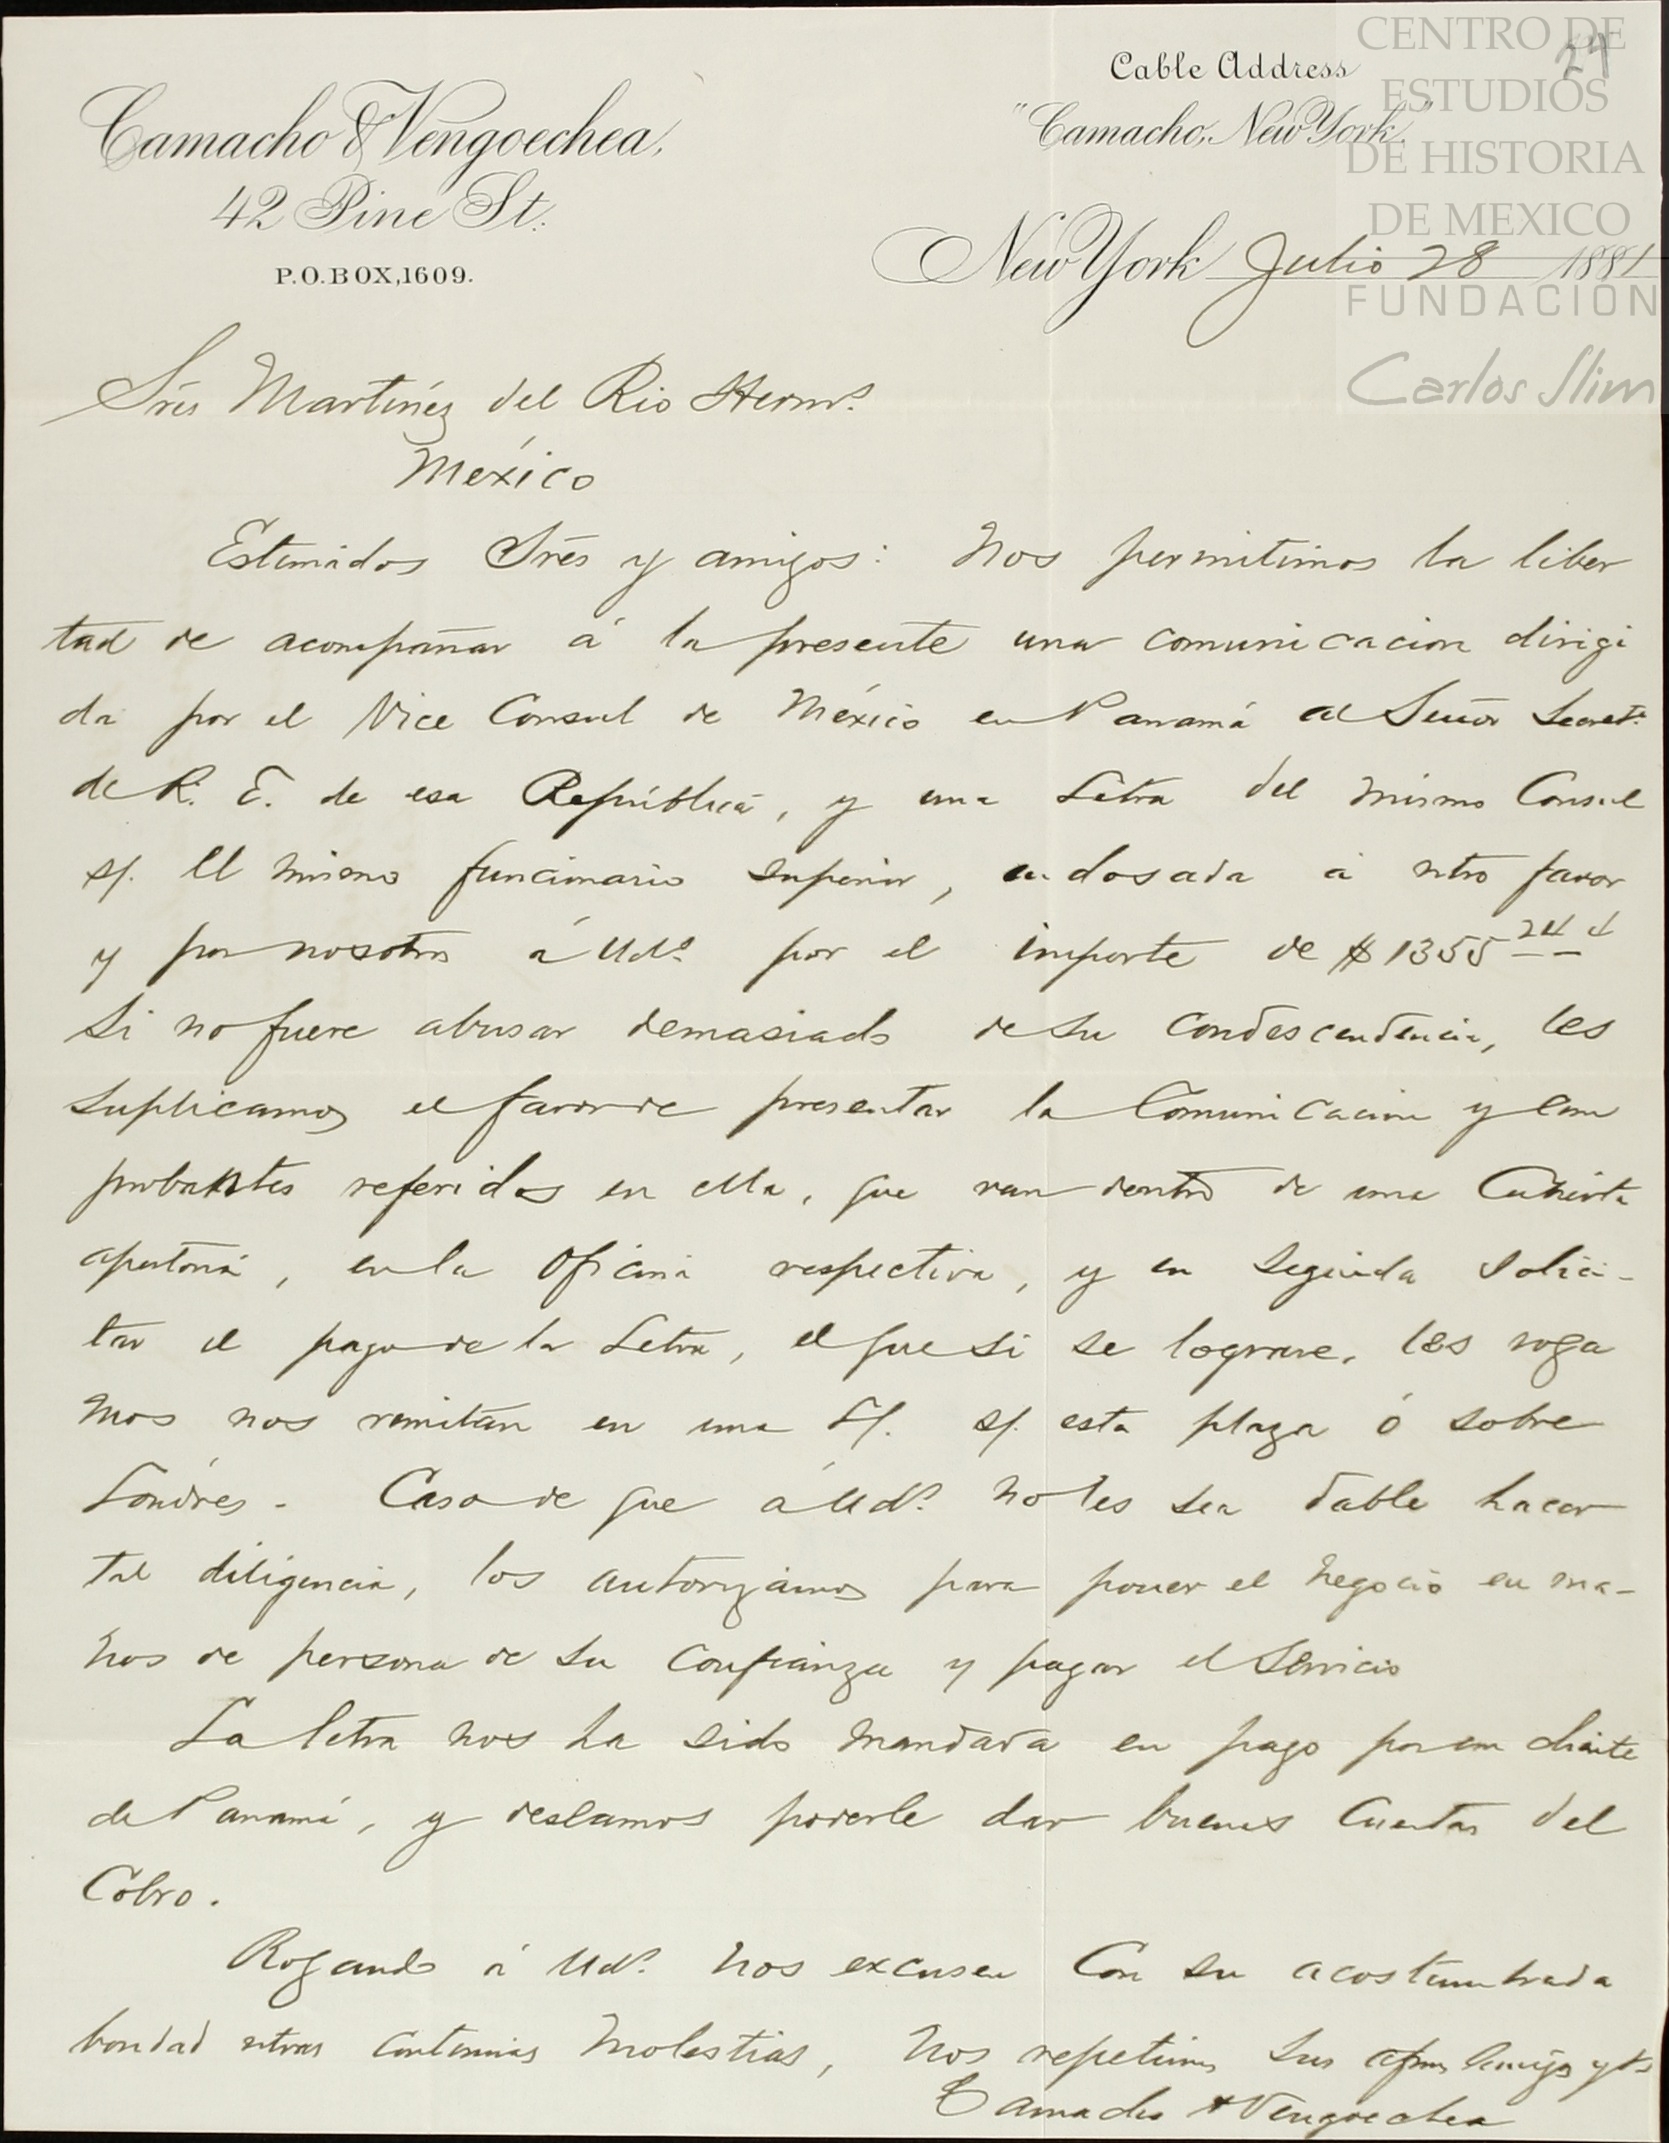 24
Camacho & Vengoechea,
42 Pine St.
P.O.BOX,1609.
Cable Address
"Camacho, New York."
CENTRO DE
ESTUDIOS
DE HISTORIA
DE MEXICO
FUNDACION
Carlos Slim
New York Julio 28 1881
Srés Martínez del Rio Hermˢ.
México
Estimados Srés y amigos: Nos permitimos la liber
tad de acompañar á la presente una comunicacion dirigi
da por el Vice Consul de México en Panamá al Señor Secretº
de R. E. de esa República, y una Letra del mismo Consul
s/. El mismo funcionario superior, endosada á ntro favor
y por nosotros á Udˢ. por el importe de $1355 24
Si no fuere abusar demasiado de su condescendencia, les
suplicamos el favor de presentar la Comunicacion y com
probantes referidos en ella, que van dentro de una Cubierta
, en la Oficina respectiva, y en seguida solici-
tar el pago de la Letra, el que si se lograre, les roga
mos nos remitan en una L/. s/. esta plaza ó sobre
Lóndres. Caso de que á Udˢ. no les sea dable hacer
tal diligencia, los autorizamos para poner el negocio en ma-
nos de persona de su confianza y pagar el servicio
La letra nos ha sido mandada en pago por un cliente
de Panamá, y deseamos poderle dar buenas Cuentas del
Cobro.
Rogando á Udˢ. nos excusen con su acostumbrada
bondad ntras continuas molestias, nos repetimos sus afmos amigos y
Camacho & Vengoechea